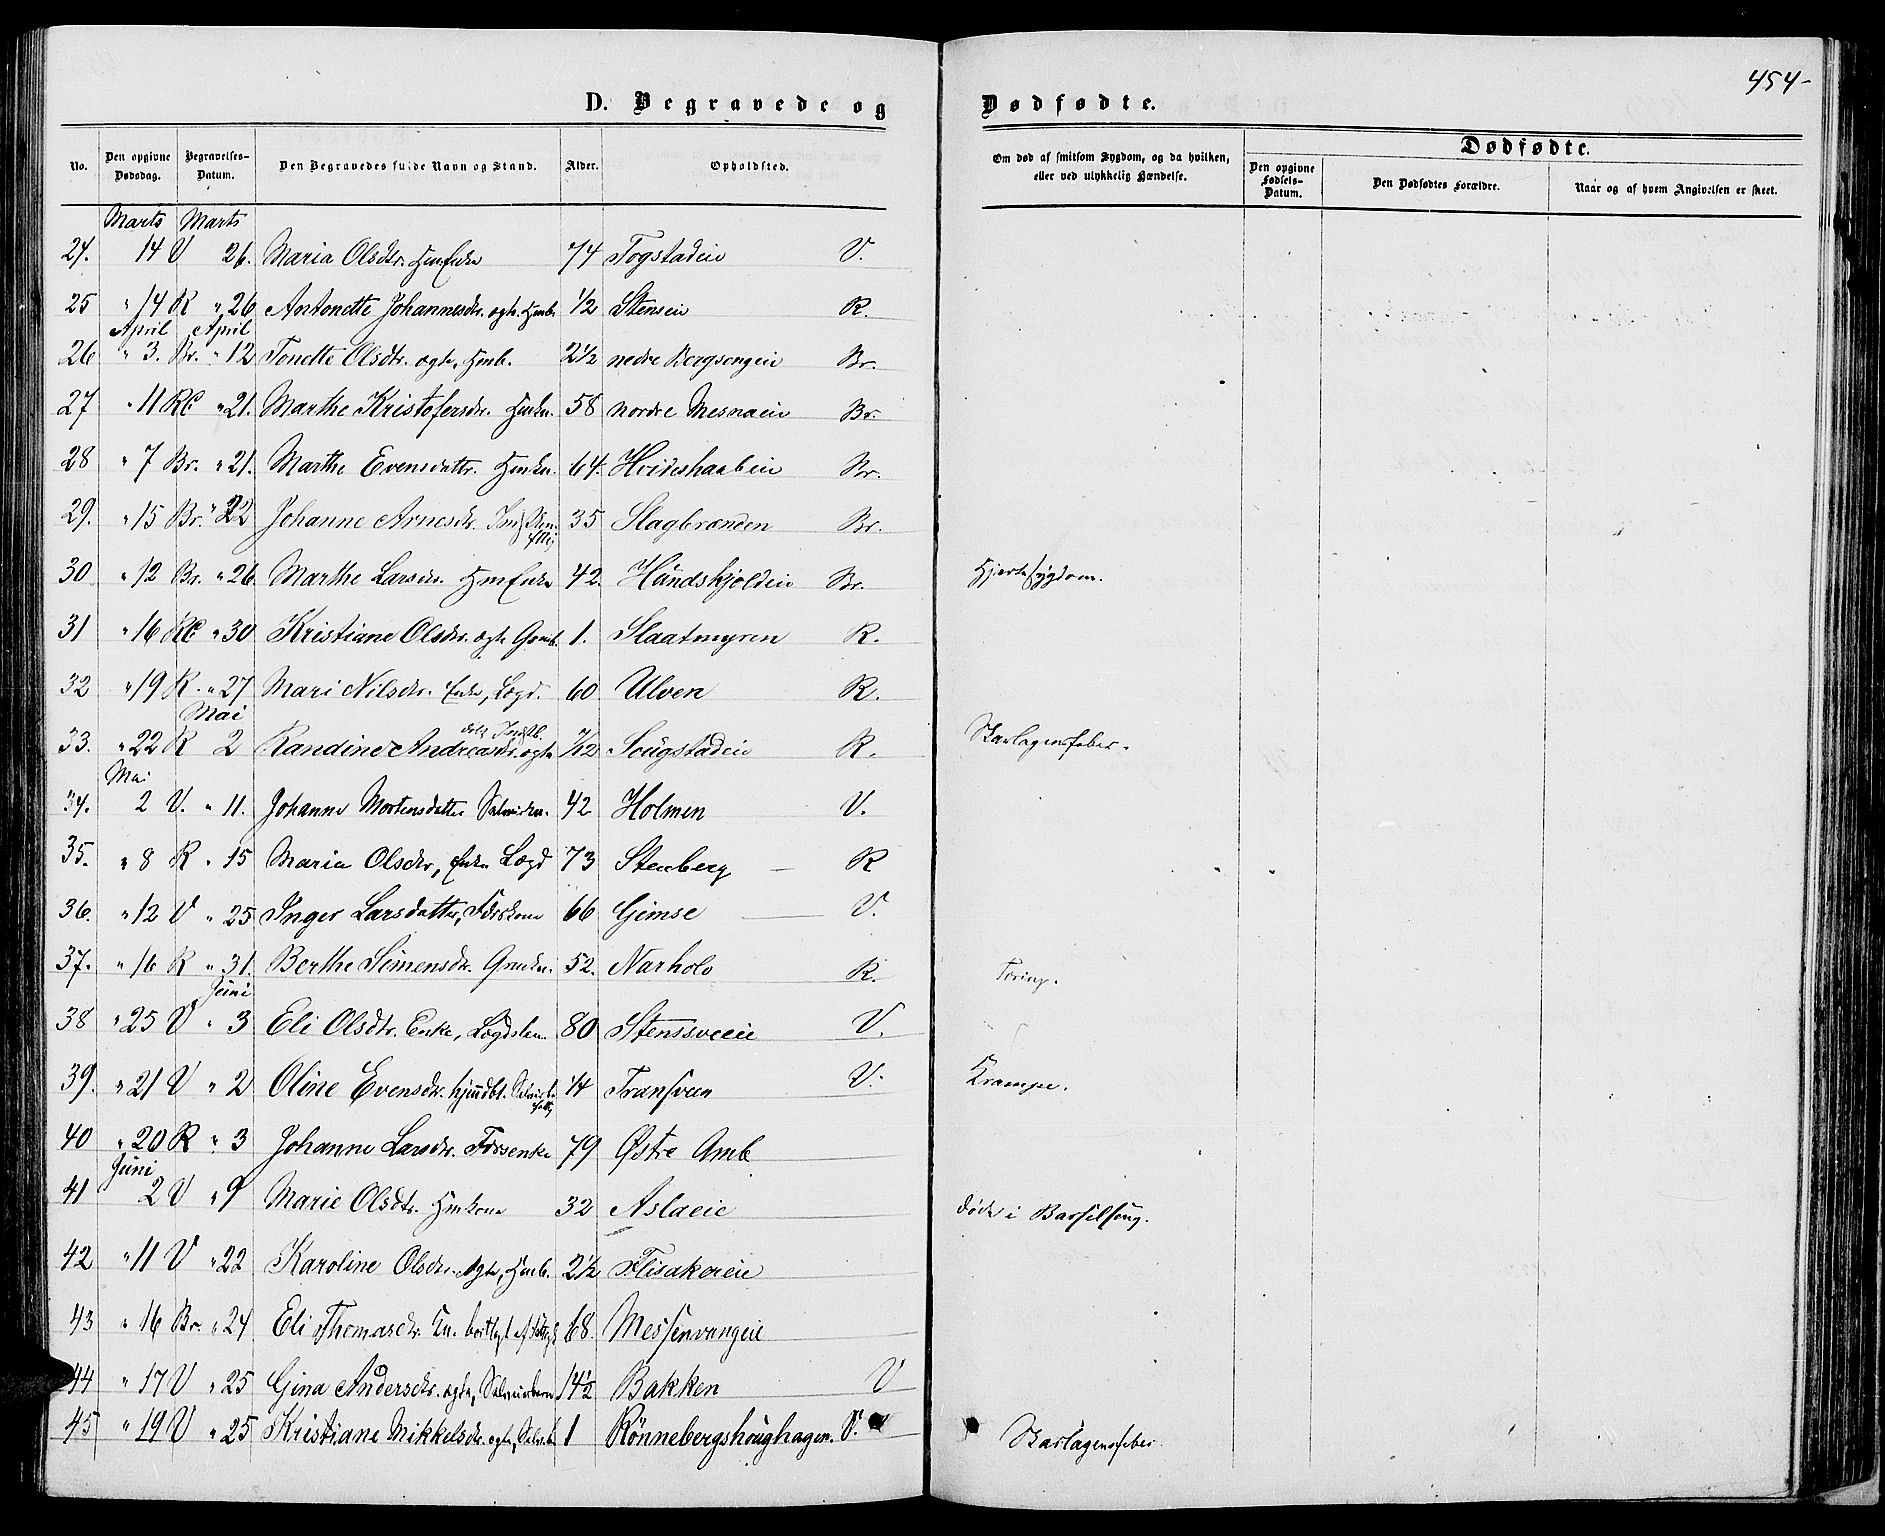 454-
D. Begravede og Dødfødte.
No. Den opgivne Dødsdag. Begravelses-Datum. Den Begravedes fulde Navn og Stand. Alder. Opholdsted. Om død af smitsom Sygdom, og da hvilken, eller ved ulykkelig Hændelse. Dødfødte. Den opgivne Fødsels-Datum. Den Dødfødtes Forældre. Naar og af hvem Angivelsen er skeet.
Marts Marts
24. 14 V 26. Maria Olsdtr. HmEnke 74 Togstadeie V.
25 " 14 R " 26 Antonette Johannesdr. ægte. Hmb. 1/2 Stenseie R.
April April
26 " 3. Br. " 12 Tonette Olsdtr. ægte, Hmb. 2 1/2 nedre Bergsengeie Br.
27 " 11 RC " 21. Marthe Kristofersdr. Hmkn. 58 nordre Mesnaeie Br.
28 " 7 Br. " 21. Marthe Evensdattr. Hmkn. 64. Hvideshaabeie Br.
29. " 15 Br. " 22 Johanne Arnesdr. 35 Slagbrenden Br.
30 " 12 Br. " 26 Marthe Larsdr. HmEnke 42. Håndskjoldeie Br. Hjertesygdom.
31 " 16 RC " 30 Kristiane Olsdr. ægte Gmb. 1. Slaatmyren R.
32 " 19 R. " 27 Mari Nilsdr. Enke, Lægd. 60 Ulven R.
Mai
33. " 22 R 2 Randine Andreasdr. ægte 7/12 Sougstadeie R. Skarlagensfeber.
Mai
34. 2 V. " 11. Johanne Mortensdatter 42 Holmen V.
35. " 8 R " 15 Maria Olsdr, Enke Lægd 73 Stenberg R
36. " 12 V " 25 Inger Larsdatter, Førskone 66 Gimse V.
37. " 16 R " 31. Berthe Simensdr. Gmkn. 52. Narholo R. Tæring.
Juni
38 " 25 V " 3 Eli Olsdtr. Enke, Lægdslem. 80 Stenssveeie V.
39. " 21 V " 2 Oline Evensdr. hjmdbt. 14 Transveen V. Krampe.
40 " 20 R " 3 Johanne Larsdr. Førsenke 79 Østre Amb
Juni
41 2 V " 9 Marie Olsdtr. Hmkone 32 Aslaeie døde i Barselseng.
42 " 11 V " 22 Karoline Olsdr. ægte, Hmb. 2 1/2 Flisakereie
43 " 16 Br. " 24 Eli Thomasdr. 68. Messenvangeie
44 " 17 V " 25 Gina Andersdr. ægte, Selveierbarn 14 1/2 Bakken V
45 " 19 V " 25 Kristiane Mikkelsdr. ægte, Selv.b. 1 Rönnebergshoughagen. V. Skarlagensfeber.